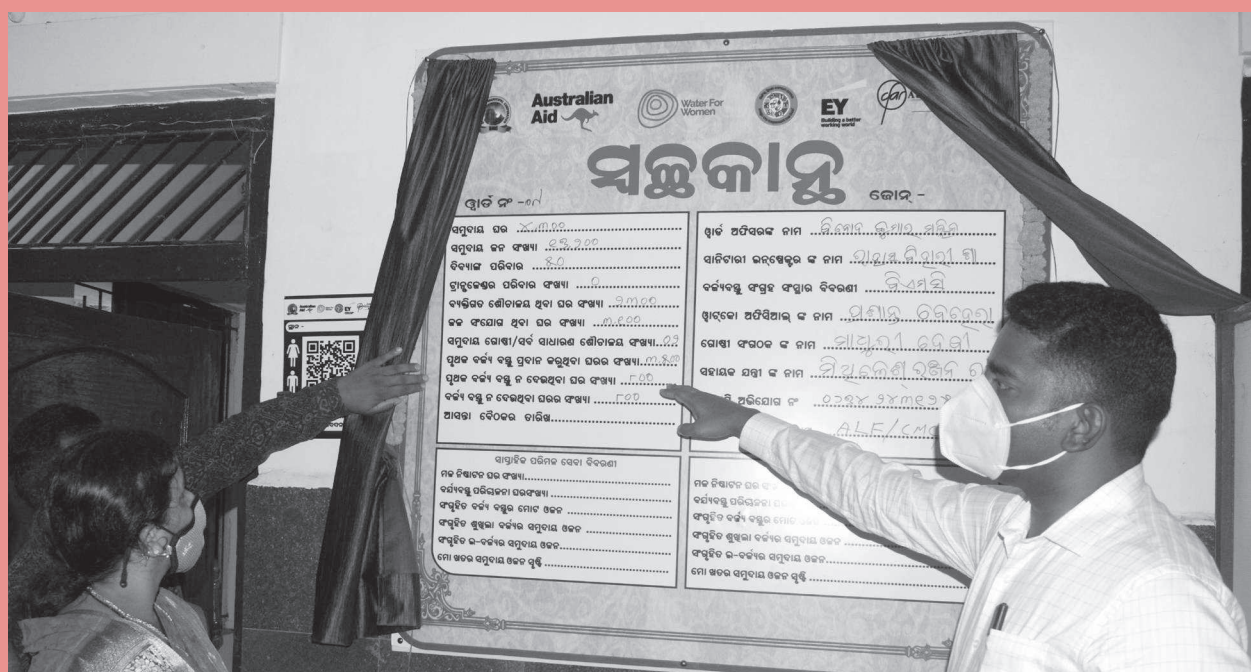 Australian Aid
Water For Women
EY
Building a better working world
ସ୍ୱଚ୍ଛକାନ୍ଥ
ୱାର୍ଡ ନଂ -୦୯
ଜୋନ୍ -
ସମୁଦାୟ ଘର ୪୩୦୦
ସମୁଦାୟ ଜନ ସଂଖ୍ୟା
ଦିବ୍ୟାଙ୍ଗ ପରିବାର ୫୦
ଟ୍ରାନ୍ସଜେଣ୍ଡର ପରିବାର ସଂଖ୍ୟା ୦
ବ୍ୟକ୍ତିଗତ ଶୌଚାଳୟ ଥିବା ଘର ସଂଖ୍ୟା ୨୩୦୦
ଜଳ ସଂଯୋଗ ଥିବା ଘର ସଂଖ୍ୟା ୩୧୦୦
ସମୁଦାୟ ଗୋଷ୍ଠୀ/ସର୍ବ ସାଧାରଣ ଶୌଚାଳୟ ସଂଖ୍ୟା
ପୃଥକ ବର୍ଜ୍ୟ ବସ୍ତୁ ପ୍ରଦାନ କରୁଥିବା ଘରର ସଂଖ୍ୟା ୩୫୦୦
ପୃଥକ ବର୍ଜ୍ୟ ବସ୍ତୁ ନ ଦେଇଥିବା ଘର ସଂଖ୍ୟା ୮୦୦
ବର୍ଜ୍ୟ ବସ୍ତୁ ନ ଦେଇଥିବା ଘରର ସଂଖ୍ୟା ୮୦୦
ଆସନ୍ତା ବୈଠକର ତାରିଖ
ୱାର୍ଡ ଅଫିସରଙ୍କ ନାମ
ସାନିଟାରୀ ଇନ୍‌ଷ୍ପେକ୍ଟର ଙ୍କ ନାମ
ବର୍ଜ୍ୟବସ୍ତୁ ସଂଗ୍ରହ ସଂସ୍ଥାର ବିବରଣୀ ବିଏମସି
ୱାଟ୍‌କୋ ଅଫିସିଆଲ୍ ଙ୍କ ନାମ ପ୍ରଶାନ୍ତ
ଗୋଷ୍ଠୀ ସଂଗଠକ ଙ୍କ ନାମ ମାଧୁରୀ ଦେବୀ
ସହାୟକ ଯନ୍ତ୍ରୀ ଙ୍କ ନାମ ମିଥିଲେଶ୍ ରଞ୍ଜନ
ଅଭିଯୋଗ ନଂ
ALF/CMC
ସାପ୍ତାହିକ ପରିମଳ ସେବା ବିବରଣୀ
ମଳ ନିଷ୍କାସନ ଘର ସଂଖ୍ୟା
ବର୍ଯ୍ୟବସ୍ତୁ ପରିଚାଳନା ଘରସଂଖ୍ୟା
ସଂଗୃହିତ ବର୍ଜ୍ୟ ବସ୍ତୁର ମୋଟ ଓଜନ
ସଂଗୃହିତ ଶୁଖିଲା ବର୍ଜ୍ୟର ସମୁଦାୟ ଓଜନ
ସଂଗୃହିତ ଇ-ବର୍ଜ୍ୟର ସମୁଦାୟ ଓଜନ
ମୋ ଖତର ସମୁଦାୟ ଓଜନ ସୃଷ୍ଟି
ମଳ ନିଷ୍କାସନ ଘର
ବର୍ଯ୍ୟବସ୍ତୁ ପରିଚାଳନା
ସଂଗୃହିତ ବର୍ଜ୍ୟ ବସ୍ତୁର ମୋଟ ଓଜନ
ସଂଗୃହିତ ଶୁଖିଲା ବର୍ଜ୍ୟର ସମୁଦାୟ ଓଜନ
ସଂଗୃହିତ ଇ-ବର୍ଜ୍ୟର ସମୁଦାୟ ଓଜନ
ମୋ ଖତର ସମୁଦାୟ ଓଜନ ସୃଷ୍ଟି